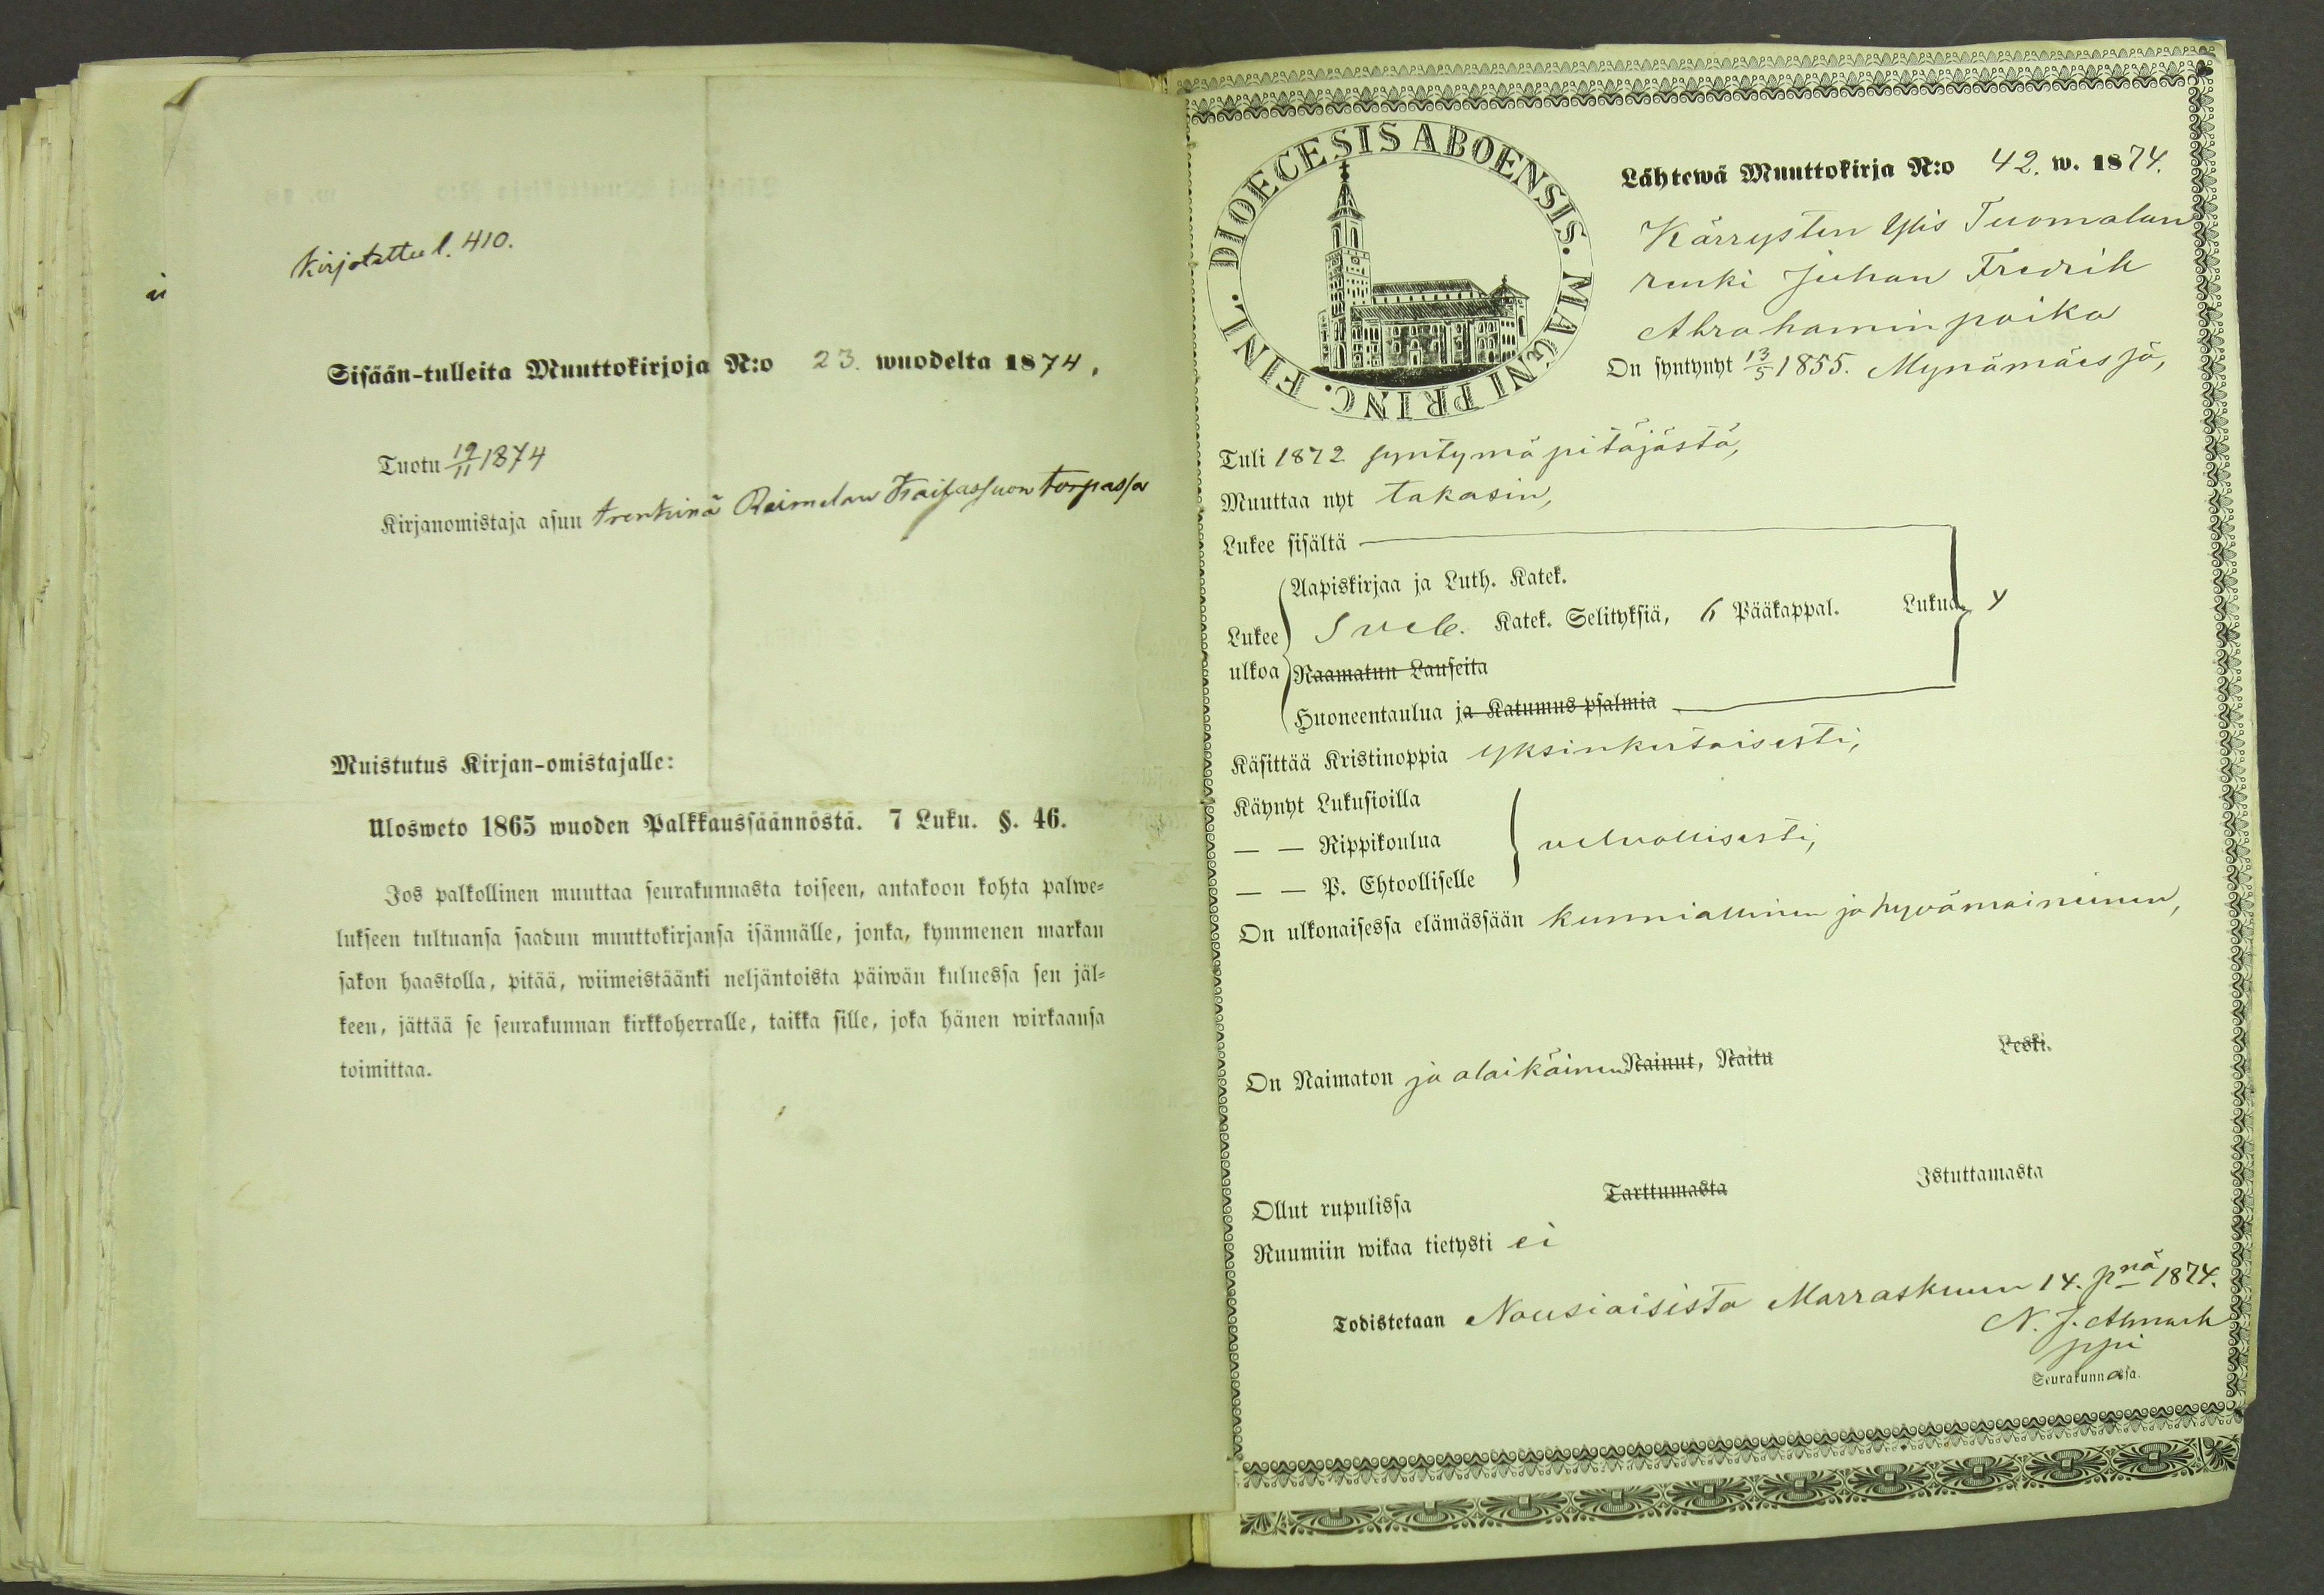 Kirjotettu l. 410.
Sisään-tulleita Muuttokirjoja N:o 23. wuodelta 1874.
Tuotu 19/11 1874
Kirjanomistaja asuu trenkinä Raimelan torpassa
Muistutus Kirjan-omistajalle:
Ulosweto 1865 wuoden Palkkaussäännöstä. 7 Luku. §. 46.
Jos palkollinen muuttaa seurakunnasta toiseen, antakoon kohta palwe-
lukseen tultuansa saadun muuttokirjansa isännälle, jonka, kymmenen markan
sakon haastolla, pitää, wiimeistäänki neljäntoista päiwän kuluessa sen jäl-
keen, jättää se seurakunnan kirkkoherralle, taikka sille, joka hänen wirkaansa
toimittaa.
DIOECESIS ABOENSIS. MAGNI PRINC. FINL.
Lähtewä Muuttokirja N:o 42. w. 1874.
Kärrysten Ylis Tuomalan
renki Juhan Fredrik
Abrahamin poika
On syntynyt 13/5 1855. Mynämäessä,
Tuli 1872 syntymä pitäjästä,
Muuttaa nyt takasin,
Lukee sisältä
Aapiskirjaa ja Luth. Katek.
Lukee ulkoa Sveb. Katek. Selityksiä, 6 Pääkappal. Lukua y
Raamatun Lauseita
Huoneentaulua ja Katumus psalmia
Käsittää Kristinoppia yksinkertaisesti,
Käynyt Lukusioilla
— — Rippikoulua velvollisesti,
— — P. Ehtoolliselle
On ulkonaisessa elämässään kunniallinen ja hyvämaineinen,
On Naimaton ja alaikäinen Nainut, Naitu Leski.
Ollut rupulissa Tarttumasta Istuttamasta
Ruumiin wikaa tietysti ei
Todistetaan Nousiaisista Marraskuun 14. pnä 1874.
N. J.
Seurakunnassa.